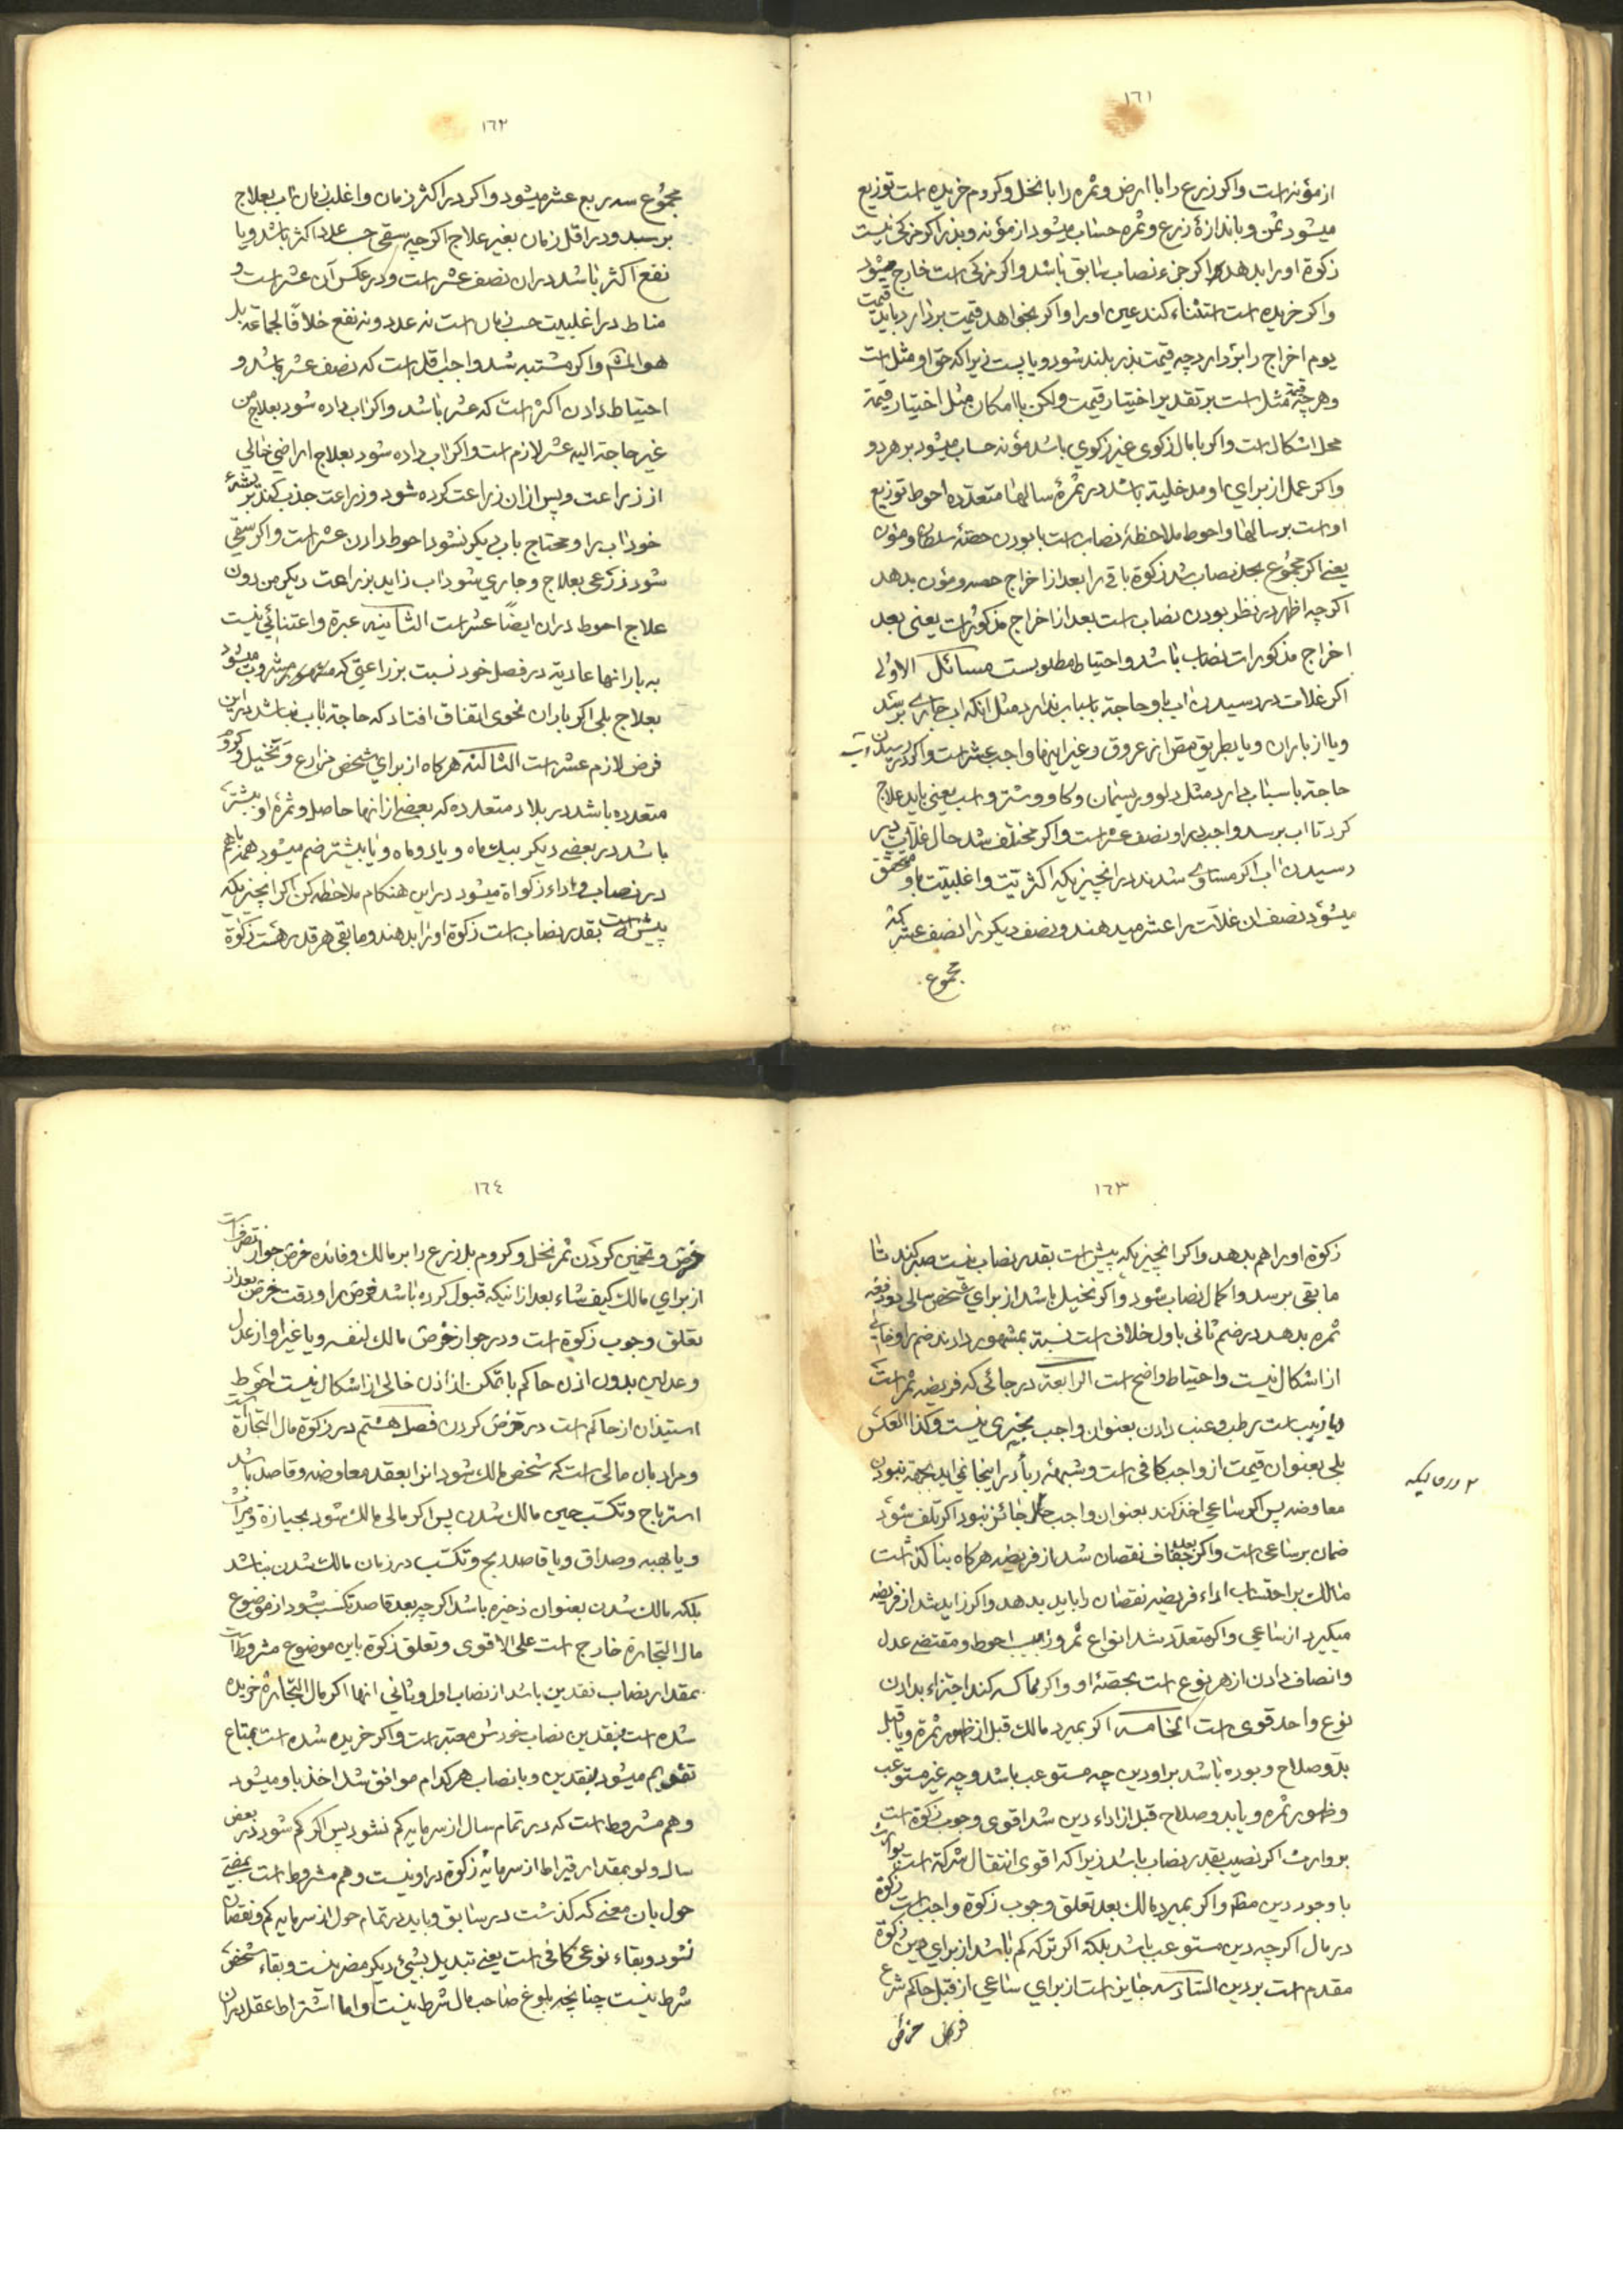 ١٦١
از مؤنه است واکر زرع را با ارض و ثمره را با نخل وکروم خریده است توزیع
میشود ثمن و باندازهٔ زرع و ثمره حساب میشود از مؤنه و بذر اکر مزکی نیست
زکوة او را بدهد اکر جزء نصاب سابق باشد واکر مزکی است خارج میشود
واکر خریده است استثناء کند عین او را واکر بخواهد قیمت بردارد باید قیمت
یوم اخراج را بردارد چه قیمت بذر بلند شود و یا پست زیرا که حق او مثل است
وهرچه قیمة مثل است بر تقدیر اختیار قیمت ولکن با امکان مثل اختیار قیمة
محل اشکال است واکر با مال زکوی غیر زکوي باشد مؤنه حساب میشود بر هر دو
واکر عمل از برای او مدخلیة باشد در ثمرهٔ سالها متعدّده احوط توزیع
او است بر سالها و احوط ملاحظهٔ نصاب است با بودن حصّهٔ سلطان و مؤن
یعنے اکر مجموع بحد نصاب شد زکوة باقی را بعد از اخراج حصه و مؤن بدهد
اکرچه اظهر در نظر بودن نصاب است بعد از اخراج مذکورات یعنی بعد
اخراج مذکورات نصاب باشد و احتیاط مطلوبست مسائل الاولی
اکر غلات در رسیدن اب باو حاجة باسباب ندارد مثل انکه اب جاری برسد
ویا از باران ویا بطریق مص از عروق و غیر اینها واجب عشر است واکر در رسیدن اب
حاجة باسباب دارد مثل دلو و ریسمان وکاو وشتر و اسب یعنی باید علاج
کرد تا اب برسد واجب در او نصف عشر است واکر مختلف شد حال غلات در
رسیدن اب اکر مساوی شدند در انچیزیکه اکثریّت و اغلبیّت باو محقق
میشود نصف ان غلّات را عشر میدهند و نصف دیکر را نصف عشر که
مجموع
١٦٢
مجموع سه ربع عشر میشود واکر در اکثر زمان و اغلب زمان اب بعلاج
برسد و در اقل زمان بغیر علاج اکرچه سقی حسب عدد اکثر باشد ویا
نفع اکثر باشد در ان نصف عشر است و در عکس آن عشر است و
مناط در اغلبیت حسب زمان است نه عدد و نه نفع خلافًا لجماعة بل
هو المش واکر مشتبه شد واجب اقل است که نصف عشر باشد و
احتیاط دادن اکثر است که عشر باشد واکر اب داده شود بعلاج من
غیر حاجة الیه عشر لازم است واکر اب داده شود بعلاج اراضي خالی
از زراعت و پس از ان زراعت کرده شود و زراعت جذب کند بریشهٔ
خود اب را و محتاج باب دیکر نشود احوط دادن عشر است واکر سقی
شود زرعی بعلاج و جاري شود اب زاید بزراعت دیکر من دون
علاج احوط در ان ایضًا عشر است الثانیه عبرة و اعتنائی نیست
به بارانها عادیة در فصل خود نسبت بزراعتی که مشروب میشود
بعلاج بلی اکر باران نحوی اتفاق افتاد که حاجة باب نباشد در این
فرض لازم عشر است الثالثه هرکاه از براي شخص مزارع و نخیل و کروم
متعدده باشد در بلاد متعدده که بعضے از انها حاصل و ثمرهٔ او بیشتر
باشد در بعضے دیکر بیک ماه و یا دو ماه و یا بیشتر ضم میشود همه باهم
در نصاب و اداء زکواة میشود در این هنکام ملاحظه کن اکر انچیزیکه
پیش است بقدر نصاب است زکوة او را بدهند و مابقی هرقدر هست زکوة
١٦٣
زکوة او را هم بدهد واکر انچیزیکه پیش است بقدر نصاب نیست صبر کند تا
مابقی برسد و اکمال نصاب شود واکر نخیل باشد از براي شخص سالی دو دفعه
ثمره بدهد در ضم ثانی باول خلاف است نسبة بمشهور دادند ضم را و خالی
از اشکال نیست و احتیاط واضح است الرابعة در جائی که فریضه تمر است
ویا زبیب است رطب و عنب دادن بعنوان واجب مجزی نیست وکذا العکس
بلی بعنوان قیمت از واجب کافی است و شبههٔ ربا در اینجا نمی اید بجهة نبودن
معاوضه پس اکر ساعی اخذ کند بعنوان واجب جائز نبود اکر تلف شود
ضمان بر ساعی است واکر بعد جفاف نقصان شد از فریضه هرکاه بنا کذاشت
مالک بر احتساب اداء فریضه نقصان را باید بدهد واکر زاید شد از فریضه
میکیرد از ساعی واکر متعدّد شد انواع تمر و زبیب احوط و مقتضے عدل
و انصاف دادن از هر نوع است بحصّهٔ او واکر مماکسه کند اجتزاء بدادن
نوع واحد قوی است الخامسه اکر بمیرد مالک قبل از ظهور ثمره ویا قبل
بدوّ صلاح و بوده باشد بر او دین چه مستوعب باشد و چه غیر مستوعب
و ظهور ثمره و یا بدو صلاح قبل از اداء دین شد اقوی وجوب زکوة است
بر وارث اکر نصیب بقدر نصاب باشد زیرا که اقوی انتقال ترکة است بوارث
با وجود دین مطلقا واکر بمیرد مالک بعد تعلق وجوب زکوة واجب است زکوة
در مال اکرچه دین مستوعب باشد بلکه اکر ترکه کم باشد از براي دین زکوة
مقدم است بر دین السادسه جایز است از براي ساعي از قبل حاکم شرع
خرص
١٦٤
خرص و تخمین کردن ثمر نخل وکروم بل زرع را بر مالک و فائده خرص جواز تصرفات
از براي مالک کیف شاء بعد از انیکه قبول کرده باشد خرص را و وقت خرص بعد از
تعلق وجوب زکوة است و در جواز خرص مالک لنفسه و یا غیر او از عدل
و عدلین بدون اذن حاکم با تمکن از اذن خالی از اشکال نیست احوط
استیذان از حاکم است در خرص کردن فصل هشتم در زکوة مال التجارة است
و مراد بان مالی است که شخص مالک شود انرا بعقد معاوضه و قاصد باشد
استرباح و تکسّب حین مالک شدن پس اکر مالی مالک شود بحیازة و میراث
و یا بهبه و صداق و یا قاصد ربح و تکسّب در زمان مالک شدن نباشد
بلکه مالک شدن بعنوان ذخیره باشد اکرچه بعد قاصد تکسّب شود از موضوع
مال التجارة خارج است علی الاقوی و تعلق زکوة باین موضوع مشروط است
بمقدار نصاب نقدین باشد از نصاب اول و ثانی انها اکر مال التجارة خریده
شده است بنقدین نصاب خودش معتبر است واکر خریده شده است بمتاع
تقویم میشود بنقدین و با نصاب هرکدام موافق شد اخذ باو میشود
و هم مشروط است که در تمام سال از سرمایه کم نشود پس اکر کم شود در بعض
سال ولو بمقدار قیراط از سرمایه زکوة در او نیست و هم مشروط است بمضیّ
حول بان معنے که کذشت در سابق و باید در تمام حول از سرمایه کم و نقصان
نشود و بقاء نوعی کافی است یعنے تبدیل بشیئ دیکر مضر نیست و بقاء شخص
شرط نیست چنانچه بلوغ صاحب مال شرط نیست و اما اشتراط عقل در ان